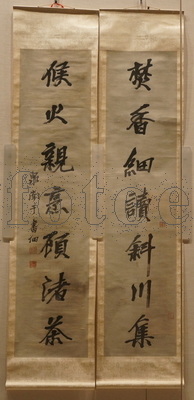 焚香細讀斜川集
候火親烹顧渚茶
fotoe